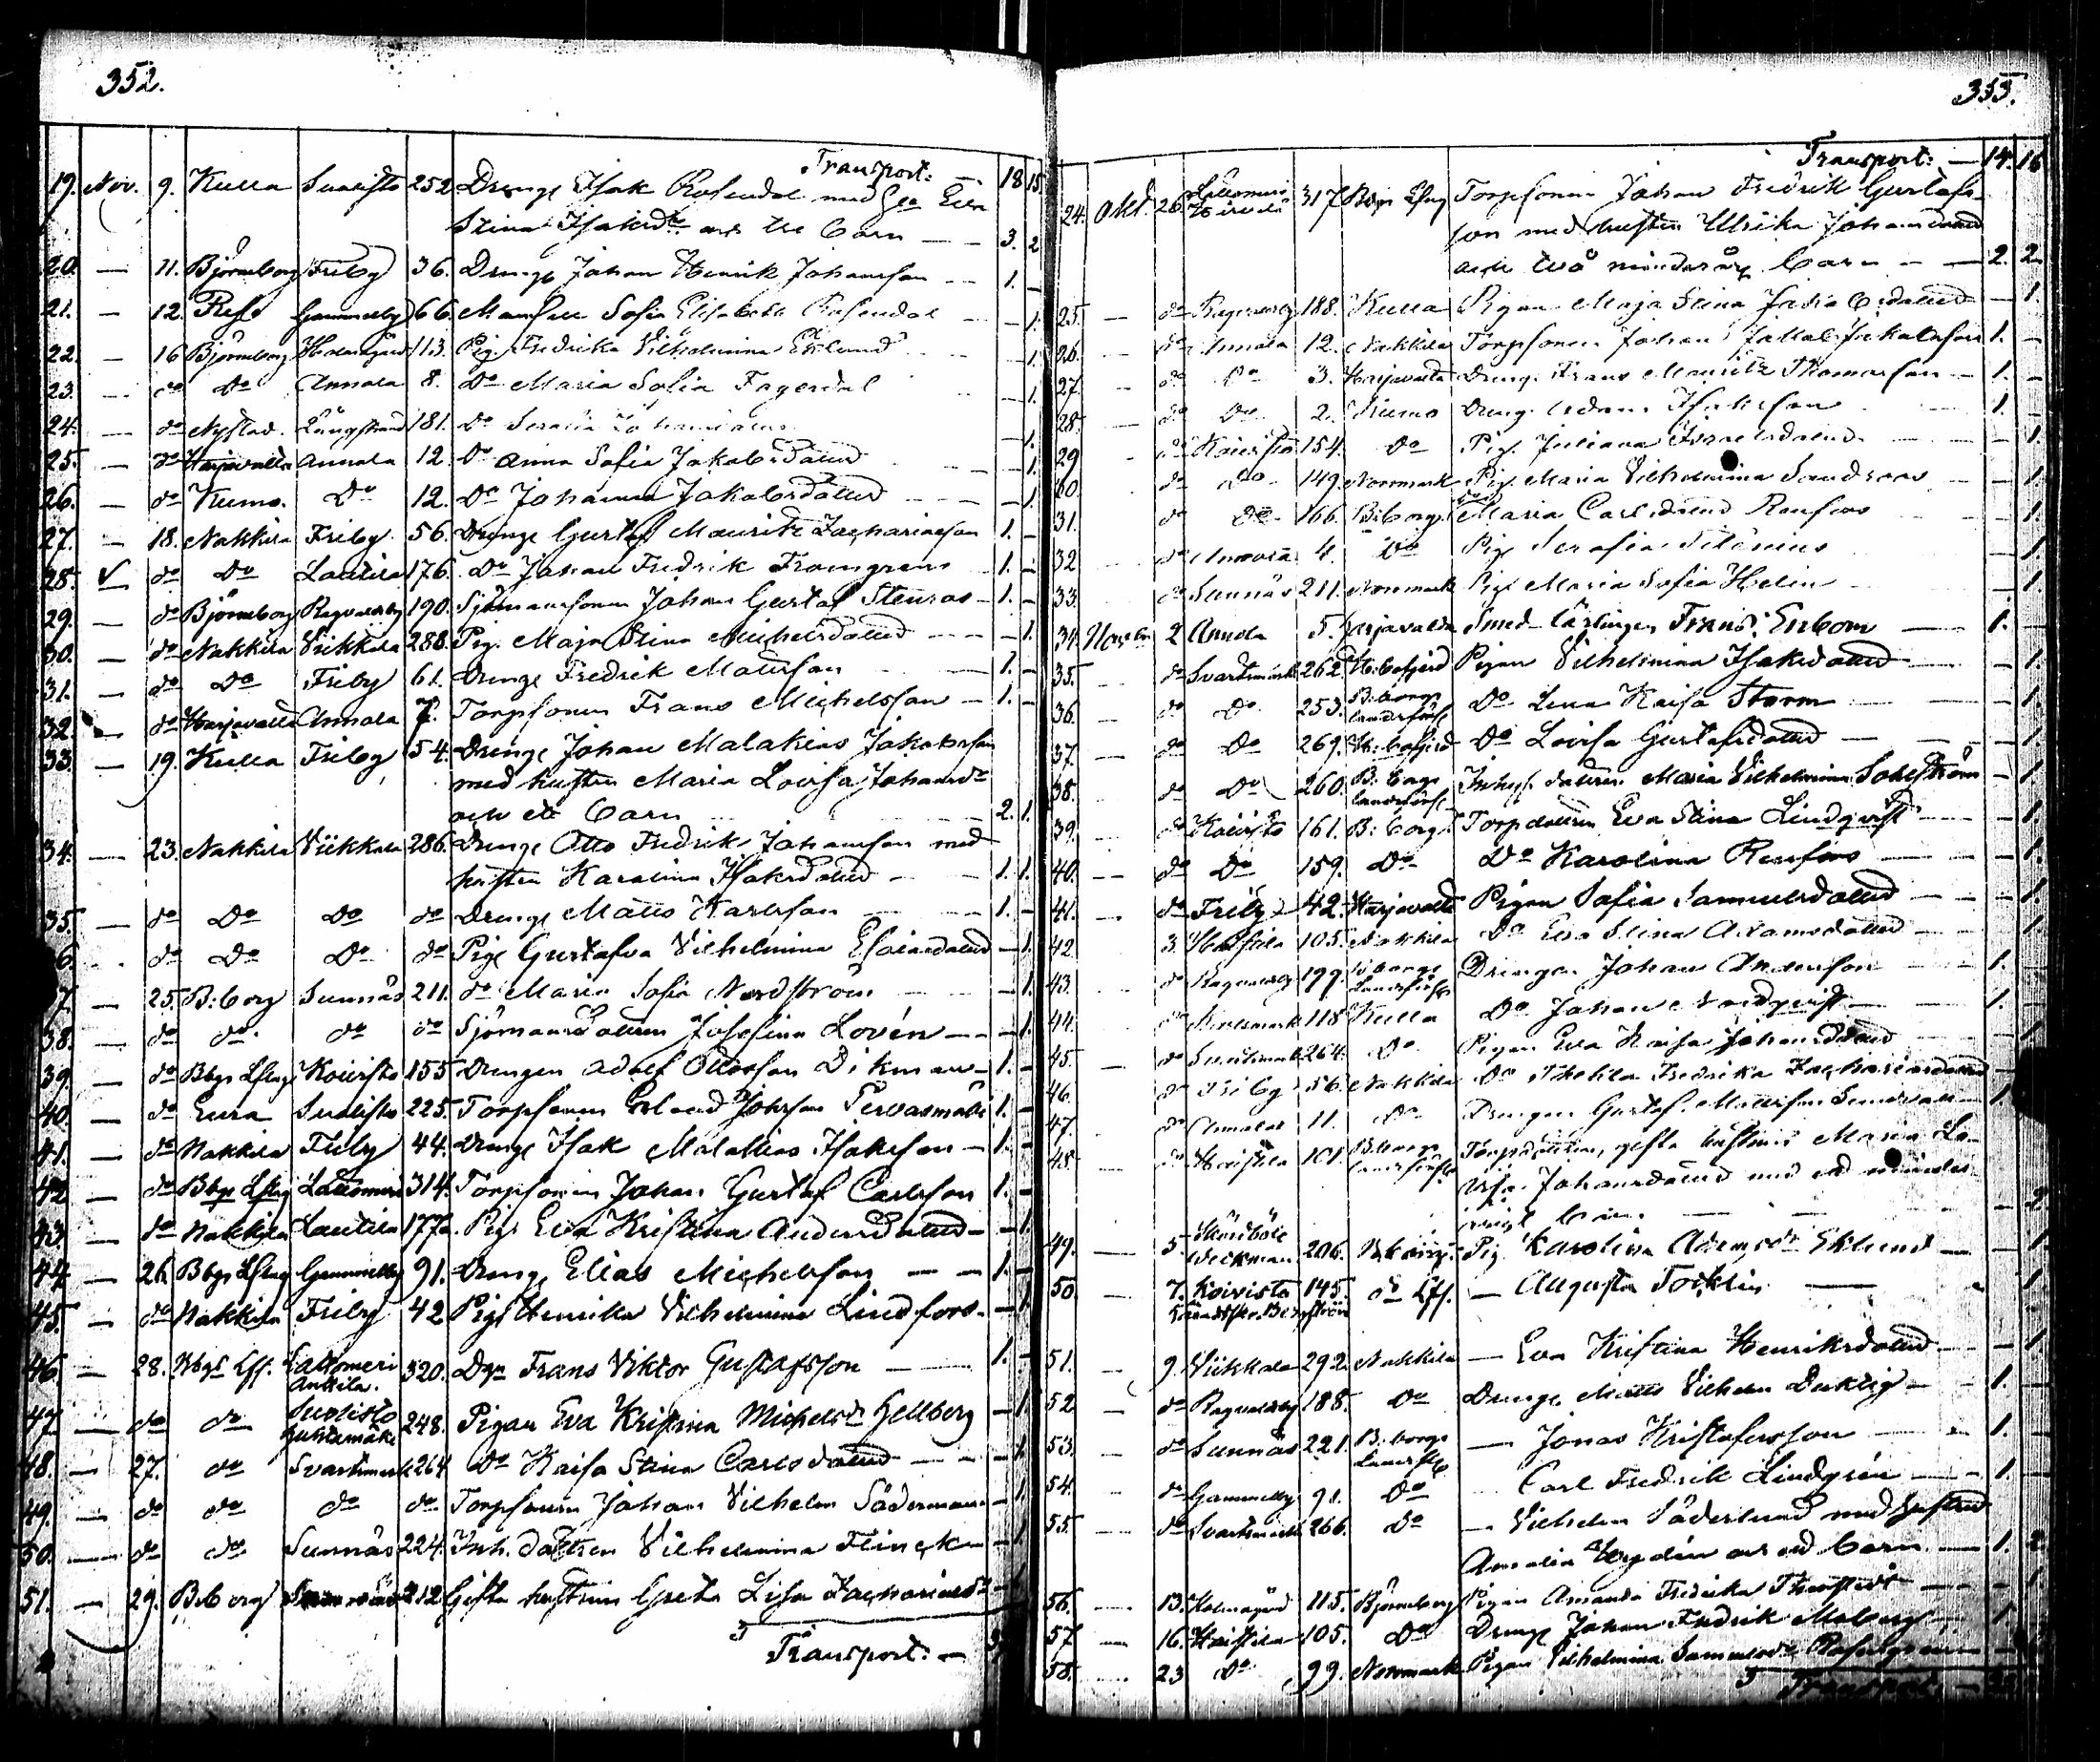 352.
Transport: — 18 15
19. Nov. 9. Kulla Suolisto 252 Dreng Isak Rosendal med Hu Eva
Stina Isaksdr och tre barn — — 3. 2
20. — 11. Björneborg Friby 36. Drengen Johan Henrik Johansson — — 1. —
21. — 12. Gammelby 66. Mamsell Sofia Elisabeth Rosendal — — 1.
22. — 16 Björneborg Holmagård 113. Pig. Fredrika Vilhelmina Eklund — 1.
23. — do Do Annala 8. Do Maria Sofia Fagerdal — 1.
24. — do Nystad. Långstrand 181. Do Serafia — 1.
25. — do Harjavalla Annala 12. Do Anna Sofia Jakobsdotter — — 1.
26. — do Kumo. Do 12. Do Johanna Jakobsdotter — — — 1.
27. — 18. Nakkila Friby. 56. Drenge Gustaf Mauritz Zachariasson 1. —
28. ✓ do Do Lautila 176. Do Johan Fredrik Framgren — 1. —
29. — do Björneborg Ragvaldsby 190. Sjömanssonen Johan Gustaf Stenroos — 1. —
30. — do Nakkila Viikkala 288. Pig. Maja Stina Michelsdotter — — — 1.
31. — do Do Friby 61. Drenge Fredrik Matsson — 1. —
32. — do Harjavalla Annala 7. Torpsonen Frans Michelsson — 1. —
33. — 19. Kulla Friby 54. Drenge Johan Malakias Jakobsson
med hustru Maria Lovisa Johansdr
och ett barn — 2. 1.
34. — 23. Nakkila Viikkala 286. Drenge Otto Fredrik Johansson med
hustru Karolina Isaksdotter — — 1. 1.
35. — do Do Do do Drenge Matts Karlsson — — 1. —
6. — do Do Do do Pige Gustafva Vilhelmina Esaiasdotter — 1.
7. — 25. B:borg Sunnäs 211. do Maria Sofia Nordström — — 1.
38. — do do do do Sjömansdottern Josefina Lovén — — — 1.
39. — do Bbgs Lfsg Koivisto 155 Drengen Adolf Ottosson Dikman — 1. —
40. — do Eura Suolisto 225. Torpsonen Erland Johsson Pervasmäki 1. —
41. — do Nakkila Friby 44. Drenge Isak Malakias Isaksson — 1. —
42 — do Bbgs Lfsg Lattomeri 314. Torpsonen Johan Gustaf Carlsson 1. —
43 — do Nakkila Lautila 177. Pige Eva Kristina Andersdotter — — 1.
44 — 26. Bbgs Lfsg Gammelby 91. Drenge Elias Michelsson — — 1. —
45. — do Nakkila Friby 42 Pige Henrika Vilhelmina Lindfors — — 1.
46. — 28. Bbgs Lff. Lattomeri 320. Dgn Frans Viktor Gustafsson — — 1. —
Anttila.
47 — do do Suolisto 248. Pigan Eva Kristina Michelsdr Hellberg — 1.
Juhtimäki
48. — 27. do Svartsmark 264 Do Kaisa Stina Carlsdotter — — — 1
49. — do do do do Torpsonen Johan Vilhelm Söderman — 1
50. — do do Sunnäs 224. Inh. dottren Vilhelmina Flinck — — 1
51. — 29. B:borg 212 Gifta hustrun Greta Lisa Zachariasdr — 1
Transport: —
353.
Transport: — 14. 16
24. Okt. 26. Lattomeri 317 Torpsonen Johan Fredrik Gustafs-
Hirvelä
son med hustru Ulrika Johansdotter
och två minderåriga barn — — 2. 2
25. — do Ragvaldsby 188. Kulla Pigan Maja Stina — 1.
26. — do Annala 12. Nakkila Torpsonen Johan Jakobsson 1. —
27. — do Do 3. Harjavalla Dreng. Frans Mauritz Thomasson — 1. —
28. — do Do 2. Kumo Dreng. Adam Isaksson 1. —
29 — do Koivisto 154. Do Pig. Juliana Israelsdotter — 1.
30. do Do 149. Norrmark Pig. Maria Vilhelmina Sandroos — 1.
31. do Do 166. B:borgs Maria Carlsdotter Renfors — 1.
32 do Annala 4. Do Pig. Serafia Silenius — 1.
33. do Sunnäs 211. Norrmark Pig. Maria Sofia Helin — 1.
34 Novbr 2 Annala 5. Harjavalla Smed-lärlingen Frans Enbom — 1. —
35. — do Svartsmark 262. Pigan Vilhelmina Isaksdotter — — 1.
36. — do Do 253. B:borgs Do Lena Kaisa Storm — — 1.
landsförs
37. — do Do 269. Do Lovisa Gustafsdotter — — 1.
38. do Do 260. B:borgs Inhys. dottren Maria Vilhelmina Sohlström — 1.
landsförs
39. do Koivisto 161. B:borgs Torpdottren Eva Stina Lindqvist — 1.
40. — do Do 159. Do Do Karolina Renfors — — 1.
41. — do Friby 42. Harjavalla Pigan Sofia Samuelsdotter — — 1.
42 3 Haistila 105. Nakkila Do Eva Stina Adamsdotter — 1.
43. do Ragvaldsby 199. B:borgs Drengen Johan Andersson — 1. —
landsförs
44. do 118 Kulla Do Johan Nordqvist — 1. —
45. do Svartsmark 264. Do Pigan Eva Kaisa Johansdotter — 1
46. do Friby 56. Nakkila Do Thekla Fredrika Zachariasdotter —
47. do Annala 11. Do Drengen Gustaf Mattsson — 1.
48. do Haistila 101. B:borgs Torpdottren, gifta hustrun Maria Lo-
landsförs
visa Johansdotter med ett minder-
årigt barn. — — 2
49. — 5. Skördböle 206. B:borgs. Pig. Karolina Adamsdr Eklund — 1
Weckman
50 7. Koivisto 145. do Lfs. — Augusta Tocklin — 1
Länsskr. Bergström
51. — 9. Viikkala 292. Nakkila — Eva Kristina Henriksdotter — 1
52. — do Ragvaldsby 188. Do Drenge Matts Vilhelm Duktig — 1.
53. — do Sunnäs 221. B:borgs — Jonas Kristofersson — 1.
landsfs
54. — do Gammelby 91. Do — Carl Fredrik Lindgrén — 1.
55. — do Svartsmark 266. Do — Vilhelm Söderlund med hustru
Amalia och ett barn — 1. 2
56. — 13. Holmagård 115. Björneborg Pigan Amanda Fredrika — — 1
57 — 16. Haistila 105. Do Drenge Johan Fredrik Moberg — 1
58. — 23 Do 99. Norrmark Pigan Vilhelmina Samuelsdr Rosengren — 1
Transport: —